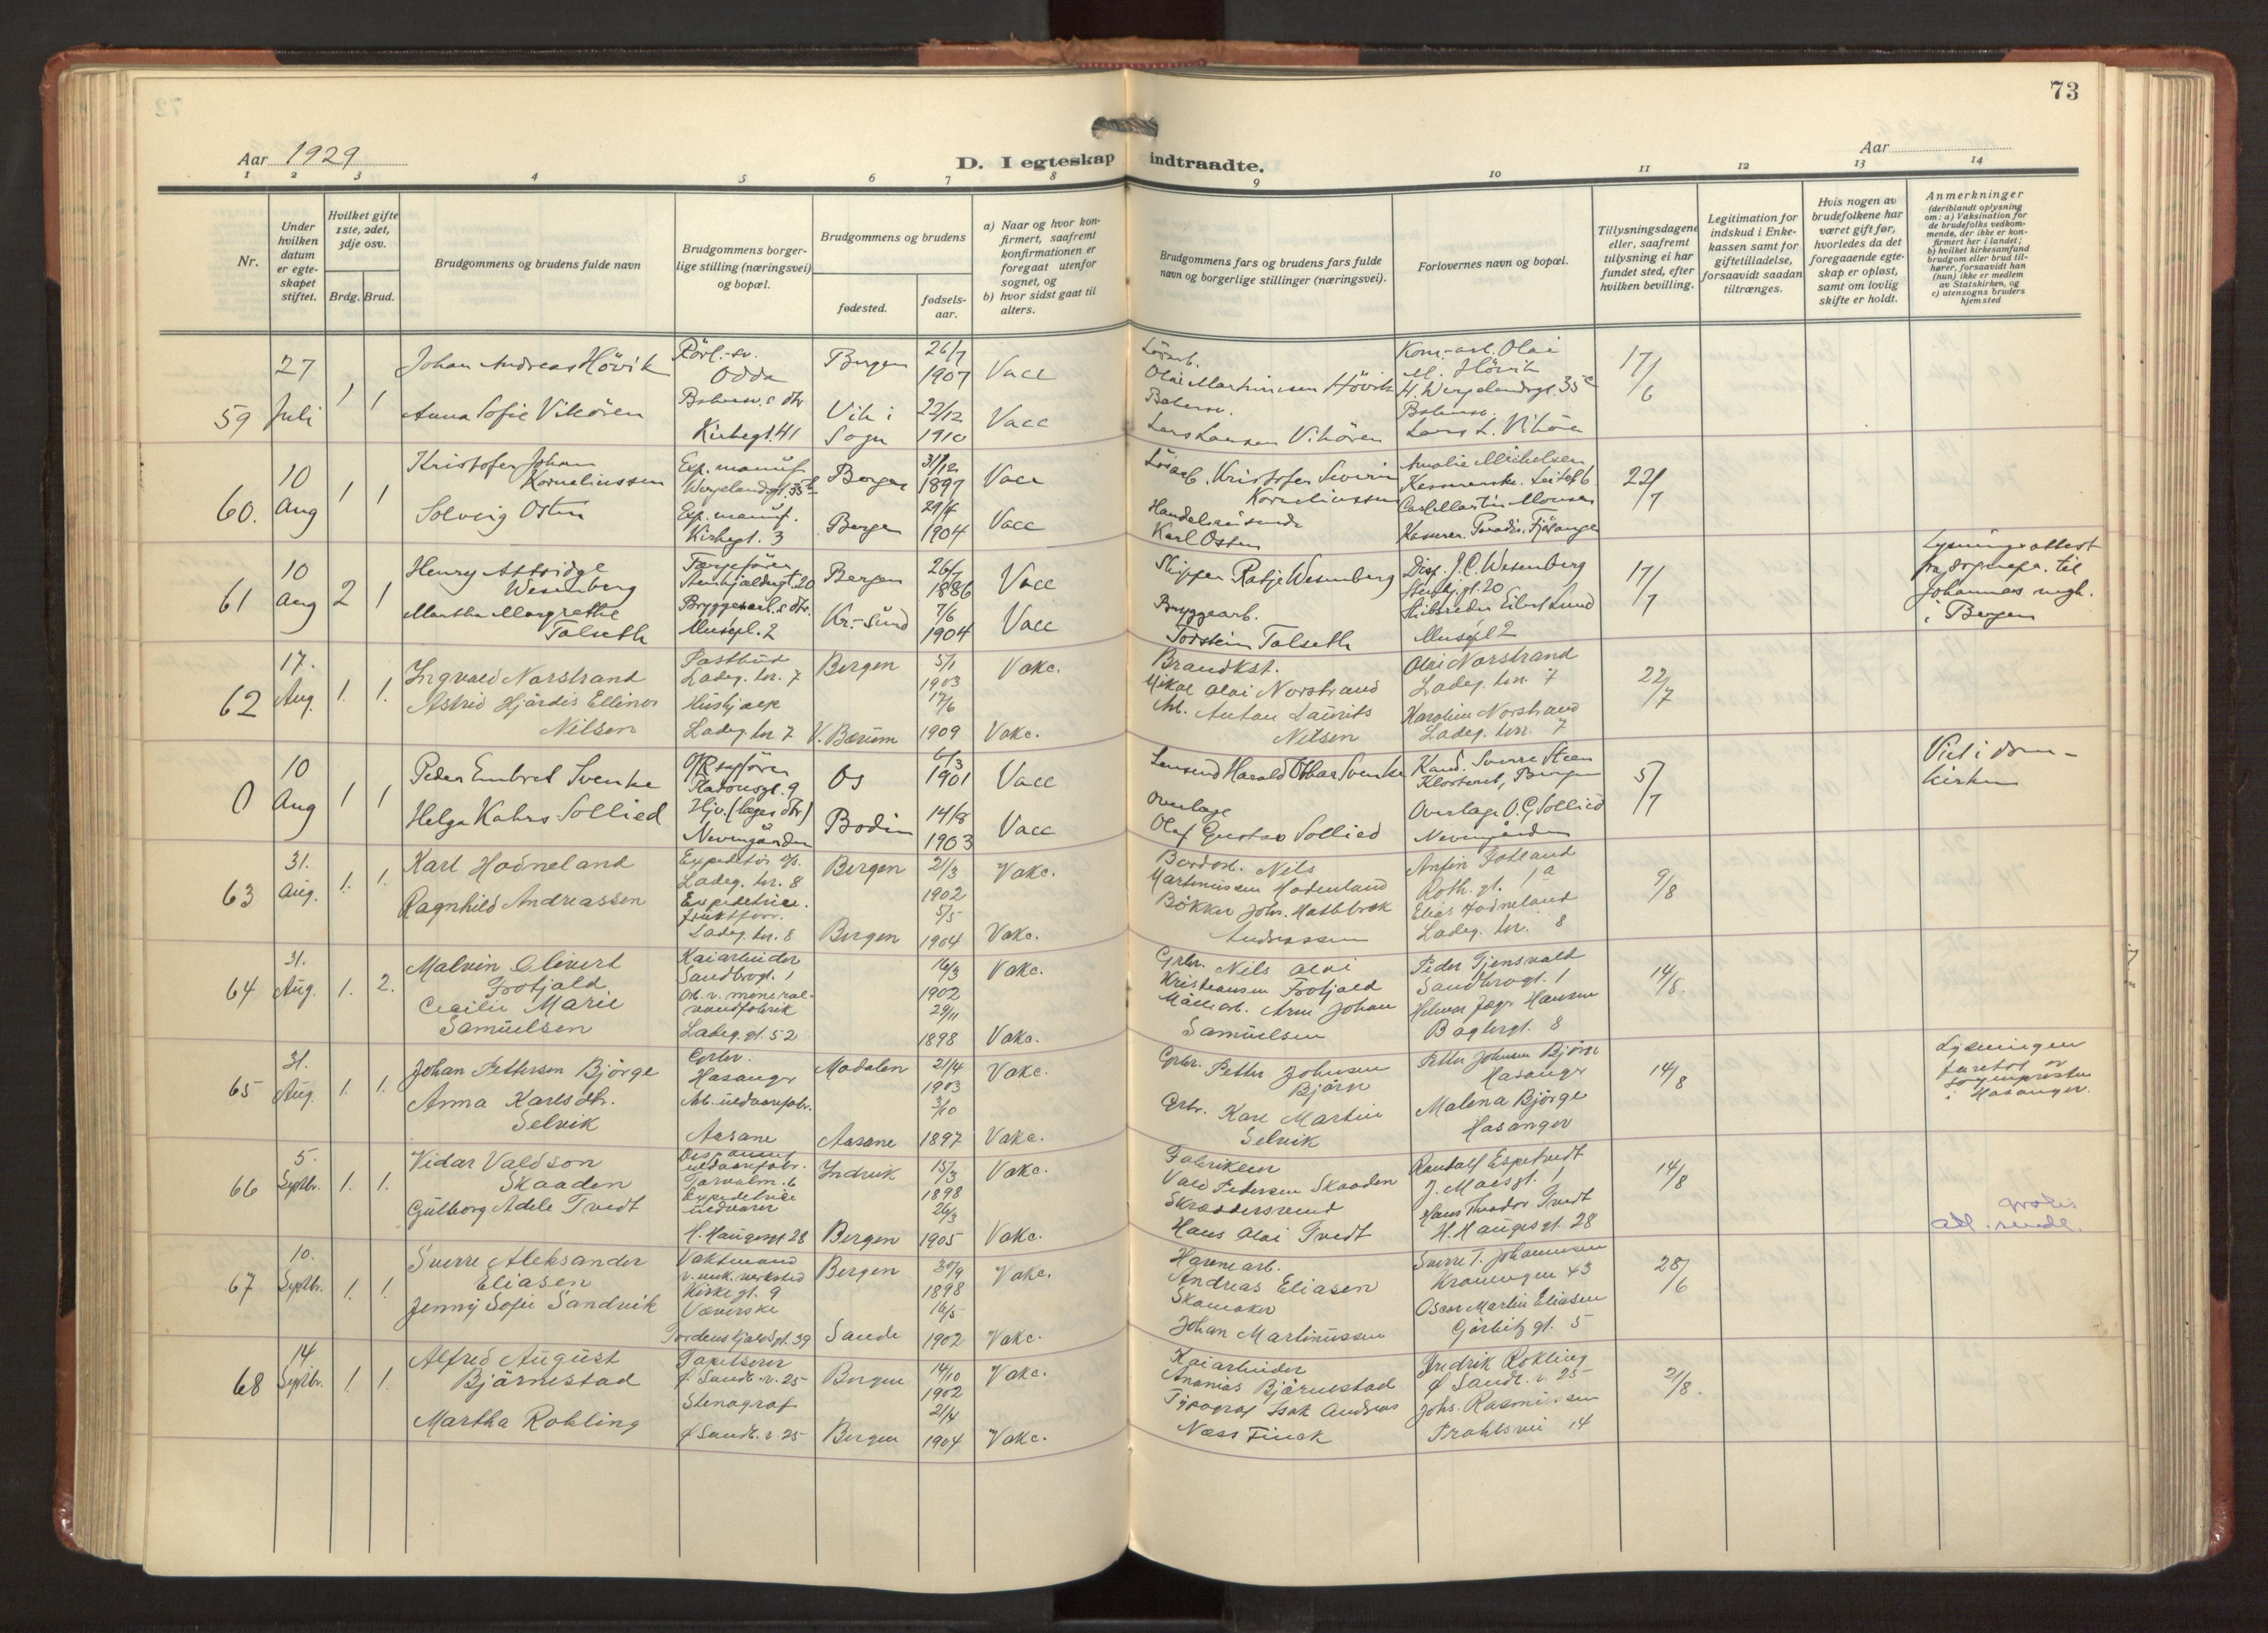 73
Aar 1929
D. I egteskap indtraadte.
Aar
1 2 3 4 5 6 7 8 9 10 11 12 13 14
Nr.
Under hvilken datum er egteskapet stiftet.
Hvilket gifte 1ste, 2det, 3dje osv.
Brdg. Brud.
Brudgommens og brudens fulde navn
Brudgommens borgerlige stilling (næringsvei) og bopæl.
Brudgommens og brudens
fødested.
fødsels-aar.
a) Naar og hvor konfirmert, saafremt konfirmationen er foregaat utenfor sognet, og
b) hvor sidst gaat til alters.
Brudgommens fars og brudens fars fulde navn og borgerlige stillinger (næringsvei).
Forlovernes navn og bopæl.
Tillysningsdagene eller, saafremt tillysning ei har fundet sted, efter hvilken bevilling.
Legitimation for indskud i Enkekassen samt for giftetilladelse, forsaavidt saadan tiltrænges.
Hvis nogen av brudefolkene har været gift før, hvorledes da det foregaaende egteskap er opløst, samt om lovlig skifte er holdt.
Anmerkninger
(deriblandt oplysning om: a) Vaksination for de brudefolks vedkommende, der ikke er konfirmert her i landet; b) hvilket kirkesamfund brudgom eller brud tilhører, forsaavidt han (hun) ikke er medlem av Statskirken, og c) utensogns bruders hjemsted
59 27 Juli 1 1
Johan Andreas Hövik Odda Bergen 26/7 1907 Vacc
Olai Martinusen Hövik
Kom.-arb. Olai M. Hövik H. Wergelandsgt. 35 17/6
Anna Sofie Vikören Kirkegt. 41 Vik i Sogn 22/12 1910 Vacc
Lars Larsen Vikören
Lars L. Vikören
60. 10 Aug 1 1
Kristofer Johan Korneliussen Exp. manuf. Wergelandsgt. 35 Bergen 31/12 1897 Vacc
Kristofer Severin Korneliussen
Amalie Michelsen 22/7
Solveig Osten Exp. manuf. Kirkegt. 3 Bergen 29/4 1904 Vacc
Handelsreisende Karl Osten
Carl Martin Monsen Kasserer. Paradis, Fjøsanger
61 10 Aug 2 1
Henry Wesenberg Færgefører 20 Bergen 26/7 1886 Vacc
Skipper Ratje Wesenberg
Disp. J. C. Wesenberg 20 17/7
Lysningsattest til Johannes mgh. i Bergen
Martha Margrethe Talseth Bryggearb.s dtr. Musépl. 2 Kr.-sund 7/6 1904 Vacc
Bryggearb. Torstein Talseth
Skibsreder Eilert Lund Musépl 2
62 17. Aug. 1. 1.
Ingvald Norstrand Postbud Ladeg. ter. 7 Bergen 5/1 1903 Vakc.
Brandkst. Mikal Olai Norstrand
Olai Norstrand Ladeg. ter. 7 22/7
Astrid Hjördis Ellinor Nilsen Hushjælp Ladeg. ter 7 V. Bærum 17/6 1909 Vakc.
Arb. Anton Laurits Nilsen
Karoline Norstrand Ladeg. ter. 7
0 10 Aug 1 1
Peder Embret Svenke O/Rsagfører 9 Os 6/3 1901 Vacc
Lensmd Harald Othar Svenke
Kand. Sverre Steen Klosteret, Bergen 5/7
Viet i domkirken
Helga Kahrs Sollied Hjv. (læges dtr) Nevengården Bodin 14/8 1903 Vacc
Overlæge Olaf Gustav Sollied
Overlæge O. G. Sollied Nevengården
63 31. Aug. 1. 1.
Karl Hodneland Expeditör Ladeg. ter. 8 Bergen 21/3 1902 Vakc.
Nils Martinussen Hodneland
Antin Fotland Roth. gt. 1a 9/8
Ragnhild Andreassen Expeditrice. fruktforr. Ladeg. ter. 8 Bergen 5/5 1904 Vakc.
Bökker Johs. Andreassen
Elias Hodneland Ladeg. ter. 8
64 31. Aug. 1. 2.
Malvin Olivert Frotjold Kaiarbeider Sandbrogt. 1 16/3 1902 Vakc.
Grbr. Nils Olai Kristiansen Frotjold
Peder Tjensvold Sandbrogt. 1 14/8.
Cecilie Marie Samuelsen Arb. v. mineralvandfabrik Ladeg. gt. 52 29/11 1898 Vakc.
Arne Johan Samuelsen
Hansen Baglergt. 8
65 31. Aug. 1. 1.
Johan Pettersen Björge Grbr. Hosanger Modalen 21/4 1903 Vakc.
Grbr. Petter Johnsen Björge
Petter Johnsen Björge Hosanger 14/8
Lysningen foretat av sognepresten i Hosanger.
Anna Karlsdtr. Selvik Arb. uldvarefabr. Aasane Aasane 3/10 1897 Vakc.
Grbr. Karl Martin Selvik
Malena Björge Hosanger
66 5. Septbr. 1. 1.
Vidar Valdson Skaaden uldvarefabr. Torvalm. 6 Indvik 15/3 1898 Vakc.
Fabrikeier Vald Pedersen Skaaden
Randolf Espetvedt 14/8
Gulborg Adele Tvedt Expeditrice uldvarer H. Haugesgt 28 Bergen 26/3 1905 Vakc.
Skræddersvend Hans Olai Tvedt
Hans Theodor Tvedt H. Hauges gt. 28
gratis att. sendt.
67 10. Septbr. 1. 1.
Sverre Aleksander Eliasen Vaktmand v. mek. verksted Kirkegt. 9 Bergen 30/9 1898 Vakc.
Havnearb. Andreas Eliasen
Sverre T. Johannesen 43 28/6
Jenny Sofie Sandvik Væverske Tordenskjoldsgt. 39 Sande 16/5 1902 Vakc.
Skomaker Johan Martinussen
Oscar Martin Eliasen Görbitz gt. 5
68 14 Septbr. 1. 1.
Alfred August Björnestad Tapetserer Ø. Sandv. v. 25 Bergen 14/10 1902 Vakc.
Kaiarbeider Ananias Björnestad
Fredrik Rokling Ø Sandv. v. 25 21/8.
Martha Rokling Stenograf Ø Sandv. v. 25 Bergen 21/4 1904 Vakc.
Typograf Isak Andreas Næss Finck
Johs. Rasmussen Prahlsvei 14